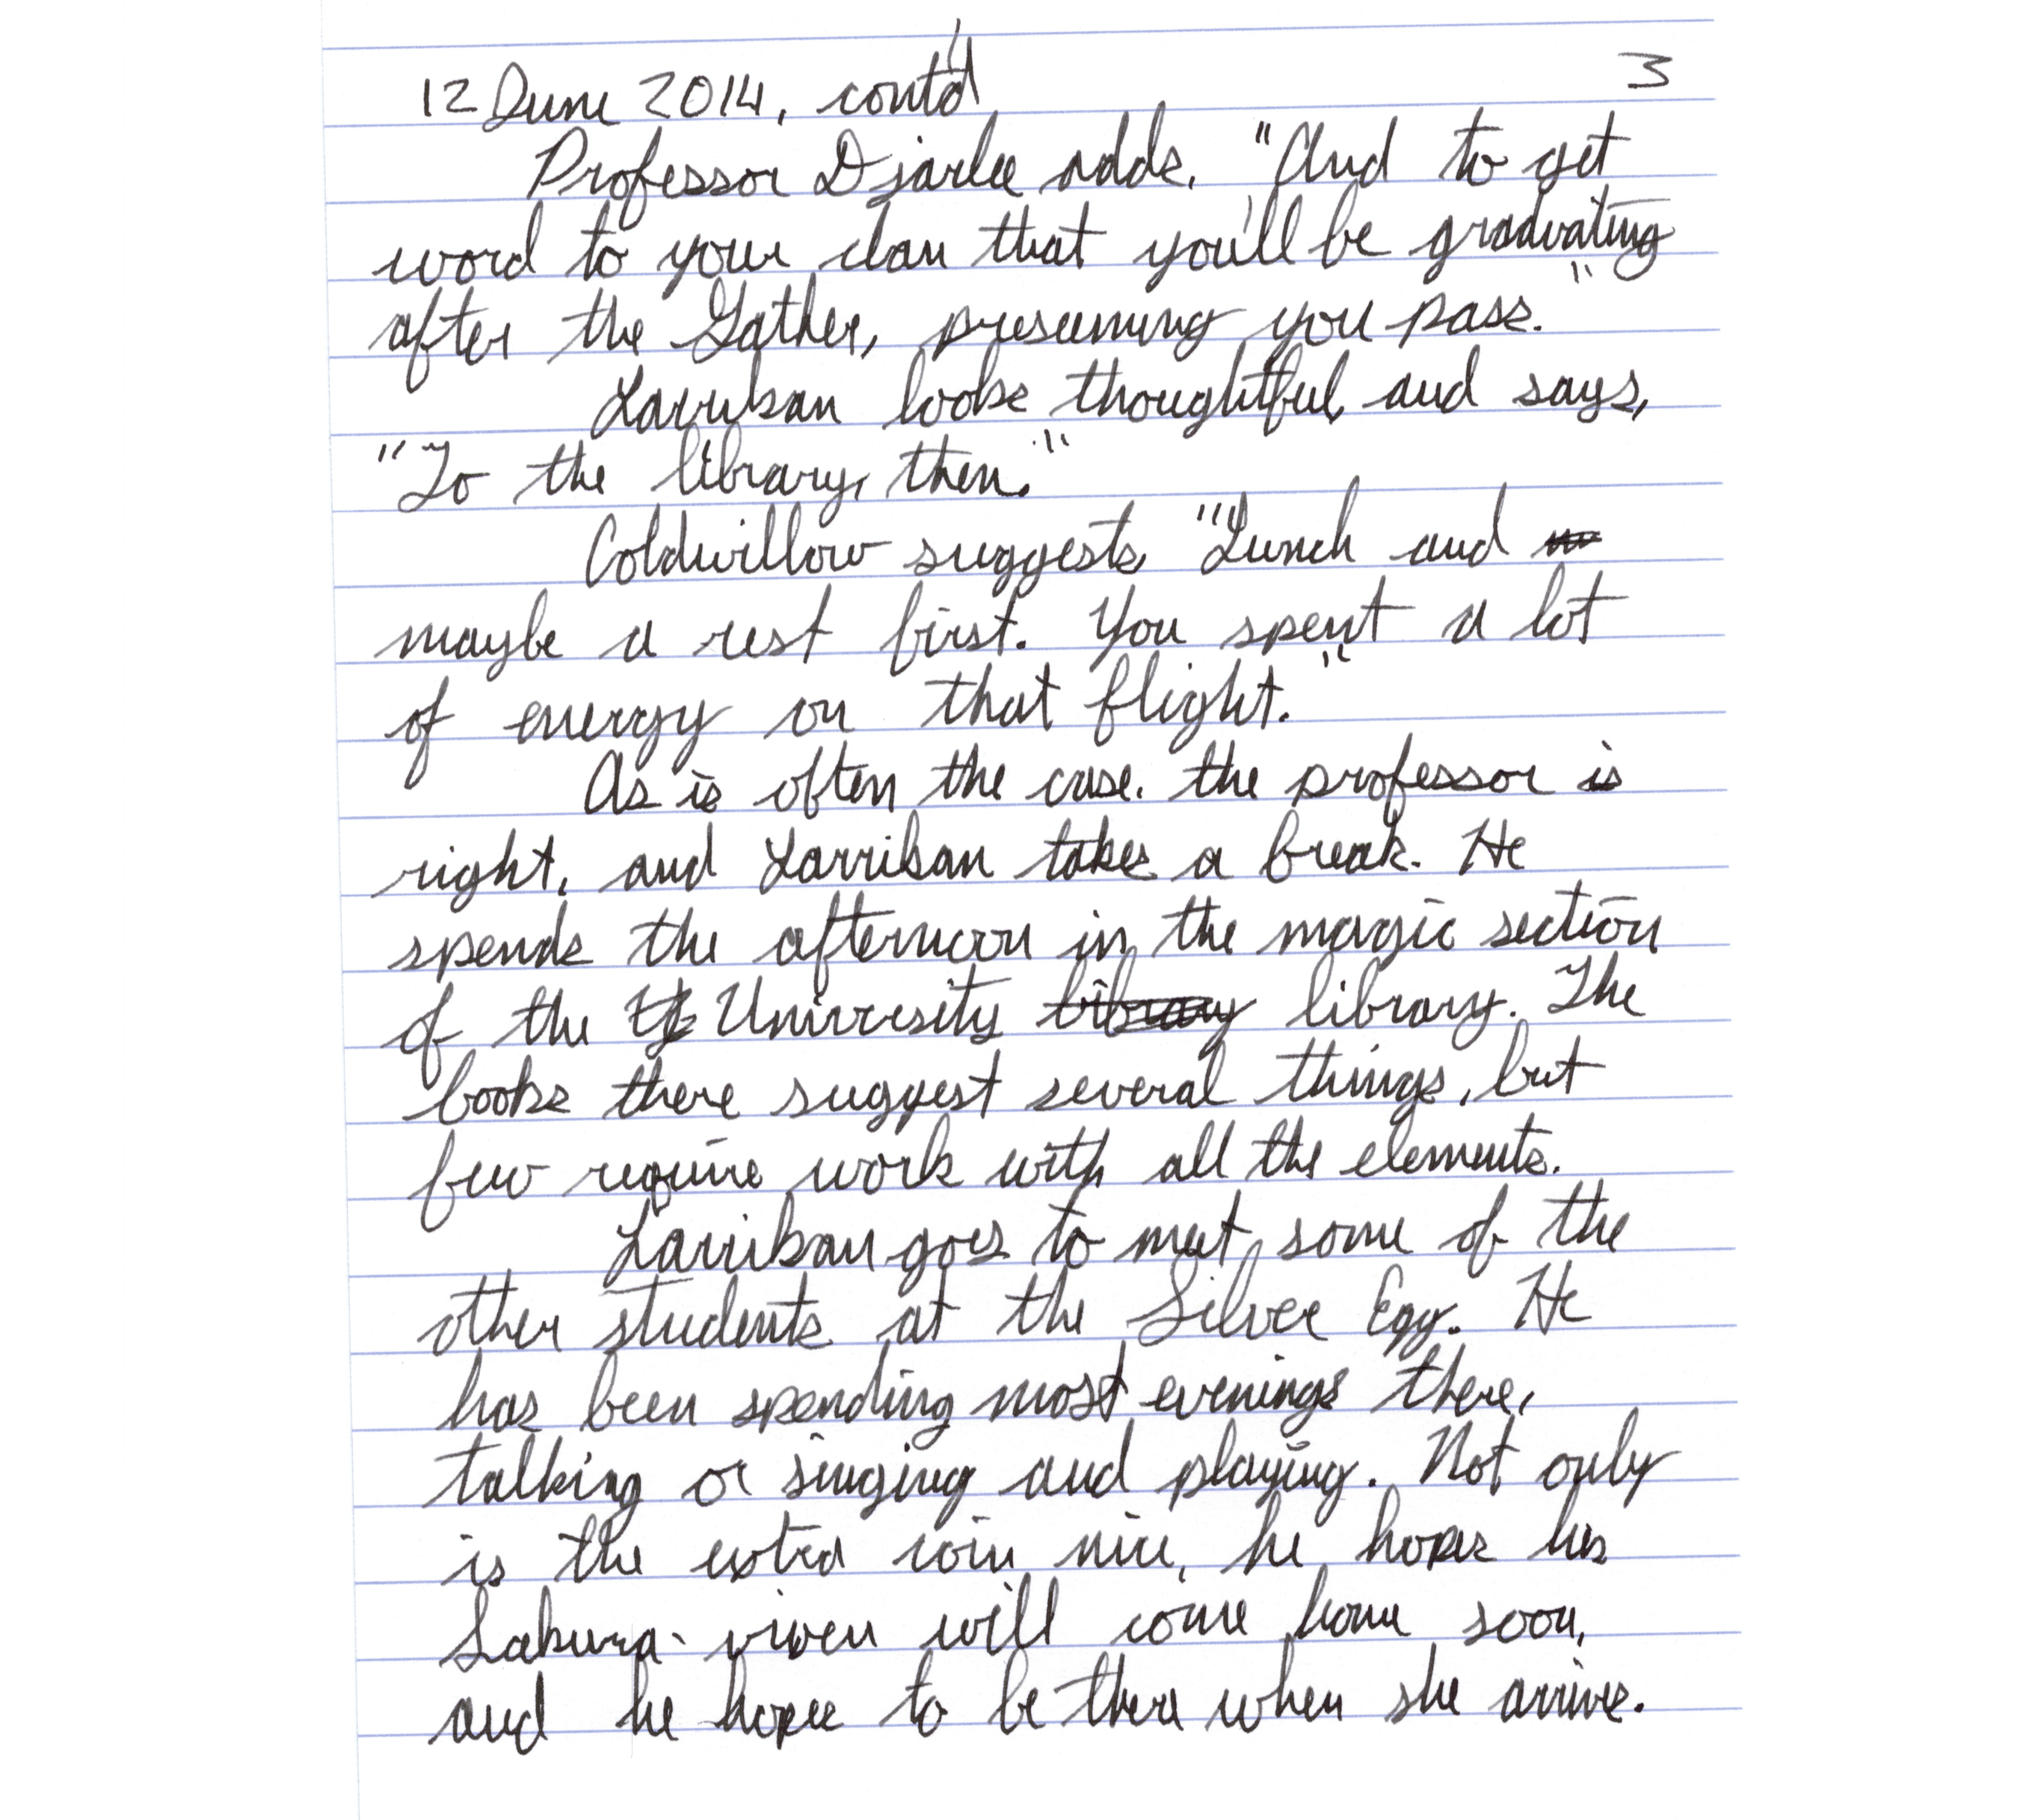 12 June 2014, cont'd 3
Professor Djarlee adds, "And to get
word to your clan that you'll be graduating
after the Gather, presuming you pass."
Larrikan looks thoughtful, and says,
"To the library, then."
Coldwillow suggests, "Lunch and
maybe a rest first. You spent a lot
of energy on that flight."
As is often the case, the professor is
right, and Larrikan takes a break. He
spends the afternoon in the magic section
of the University library library. The
books there suggest several things, but
few require work with all the elements.
Larrikan goes to meet some of the
other students at the Silver Egg. He
has been spending most evenings there,
talking or singing and playing. Not only
is the extra coin nice, he hopes his
Sakura-riven will come home soon,
and he hopes to be there when she arrives.